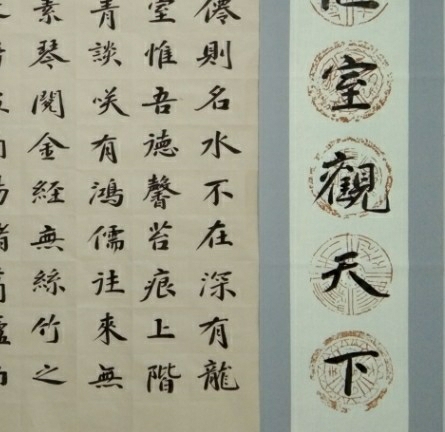 室觀天下
僊則名水不在深有龍
室惟吾德馨苔痕上階
青談咲有鴻儒往來無
素琴閱金經無絲竹之